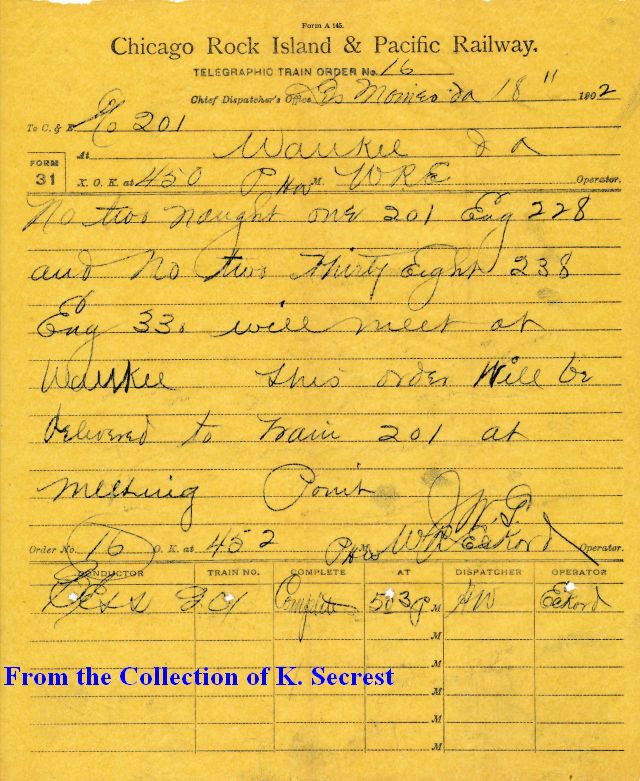 Form A 145.
Chicago Rock Island & Pacific Railway.
TELEGRAPHIC TRAIN ORDER No. 16
Chief Dispatcher's Office Des Moines Ia 18 11 1902
To C. & E. No 201
At Waukee Ia
FORM 31
X. O. K. at 450 P M. WRE Operator.
No two naught one 201 Eng 228
and No two Thirty Eight 238
Eng 330 will meet at
Waukee this order Will be
delivered to train 201 at
meeting Point
Order No. 16 O. K. at 452 P M. WR Eckord Operator.
CONDUCTOR TRAIN NO. COMPLETE AT DISPATCHER OPERATOR
201 Complete 503 P M HW Eckord
M
M
M
M
M
From the Collection of K. Secrest